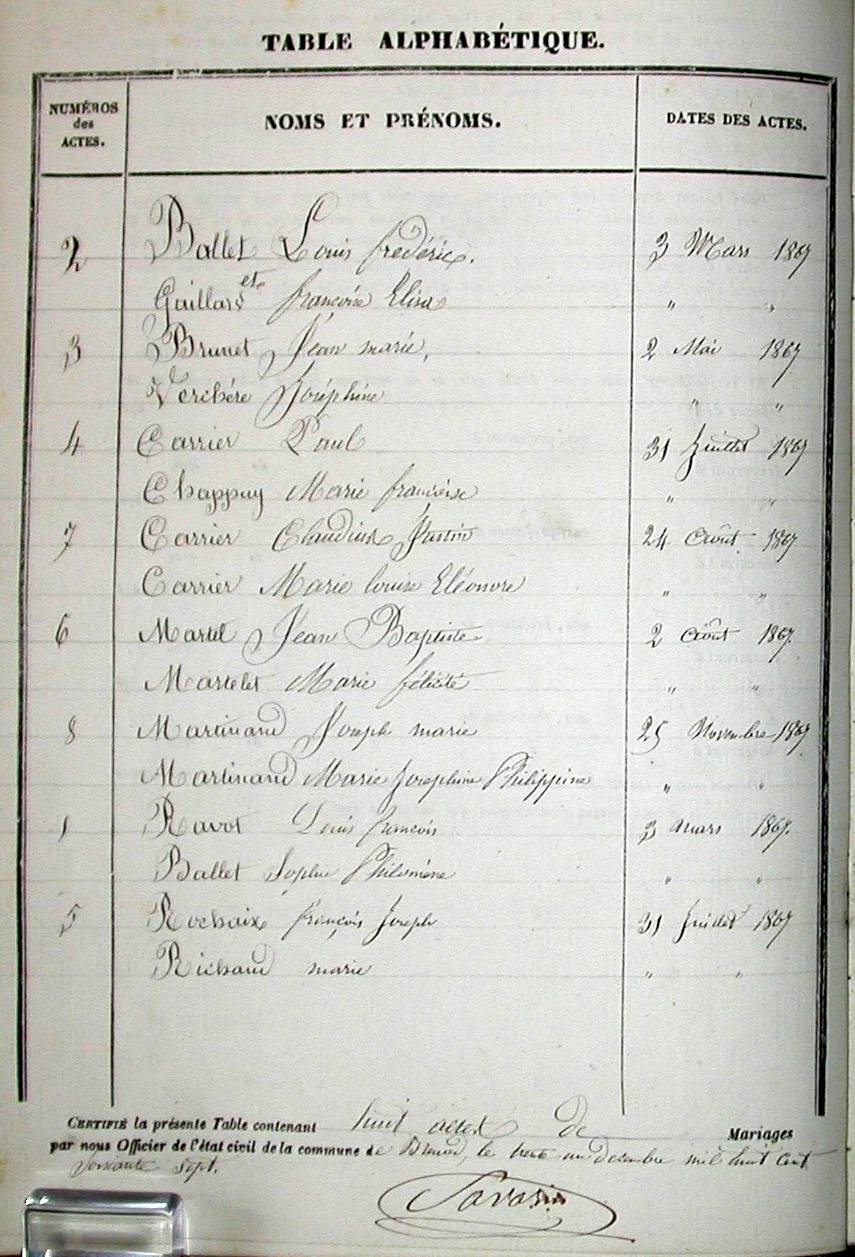 TABLE ALPHABÉTIQUE.
NUMÉROS des ACTES. NOMS ET PRÉNOMS. DATES DES ACTES.
2 Ballet Louis frédéric. 3 Mars 1867
et
Gaillard françoise Elisa " "
3 Brunet Jean marie, 2 Mai 1867
Verchère Joséphine " "
4 Carrier Paul 31 Juillet 1867
Chappuy Marie françoise " "
7 Carrier Claudius Justin 24 Août 1867
Carrier Marie louise Eléonore " "
6 Martel Jean Baptiste 2 Août 1867.
Martelet Marie félicité " "
8 Martinand Joseph marie 25 Novembre 1867
Martinand Marie Josephine Philippine " "
1 Ravot Louis françois 3 mars 1867.
Ballet Sophie Philomène " "
5 Rochaix françois Joseph 31 Juillet 1867
Richand marie " "
CERTIFIÉ la présente Table contenant huit actes de Mariages
par nous Officier de l'état civil de la commune de le trente un Décembre mil huit cent
soixante sept.
Savarin